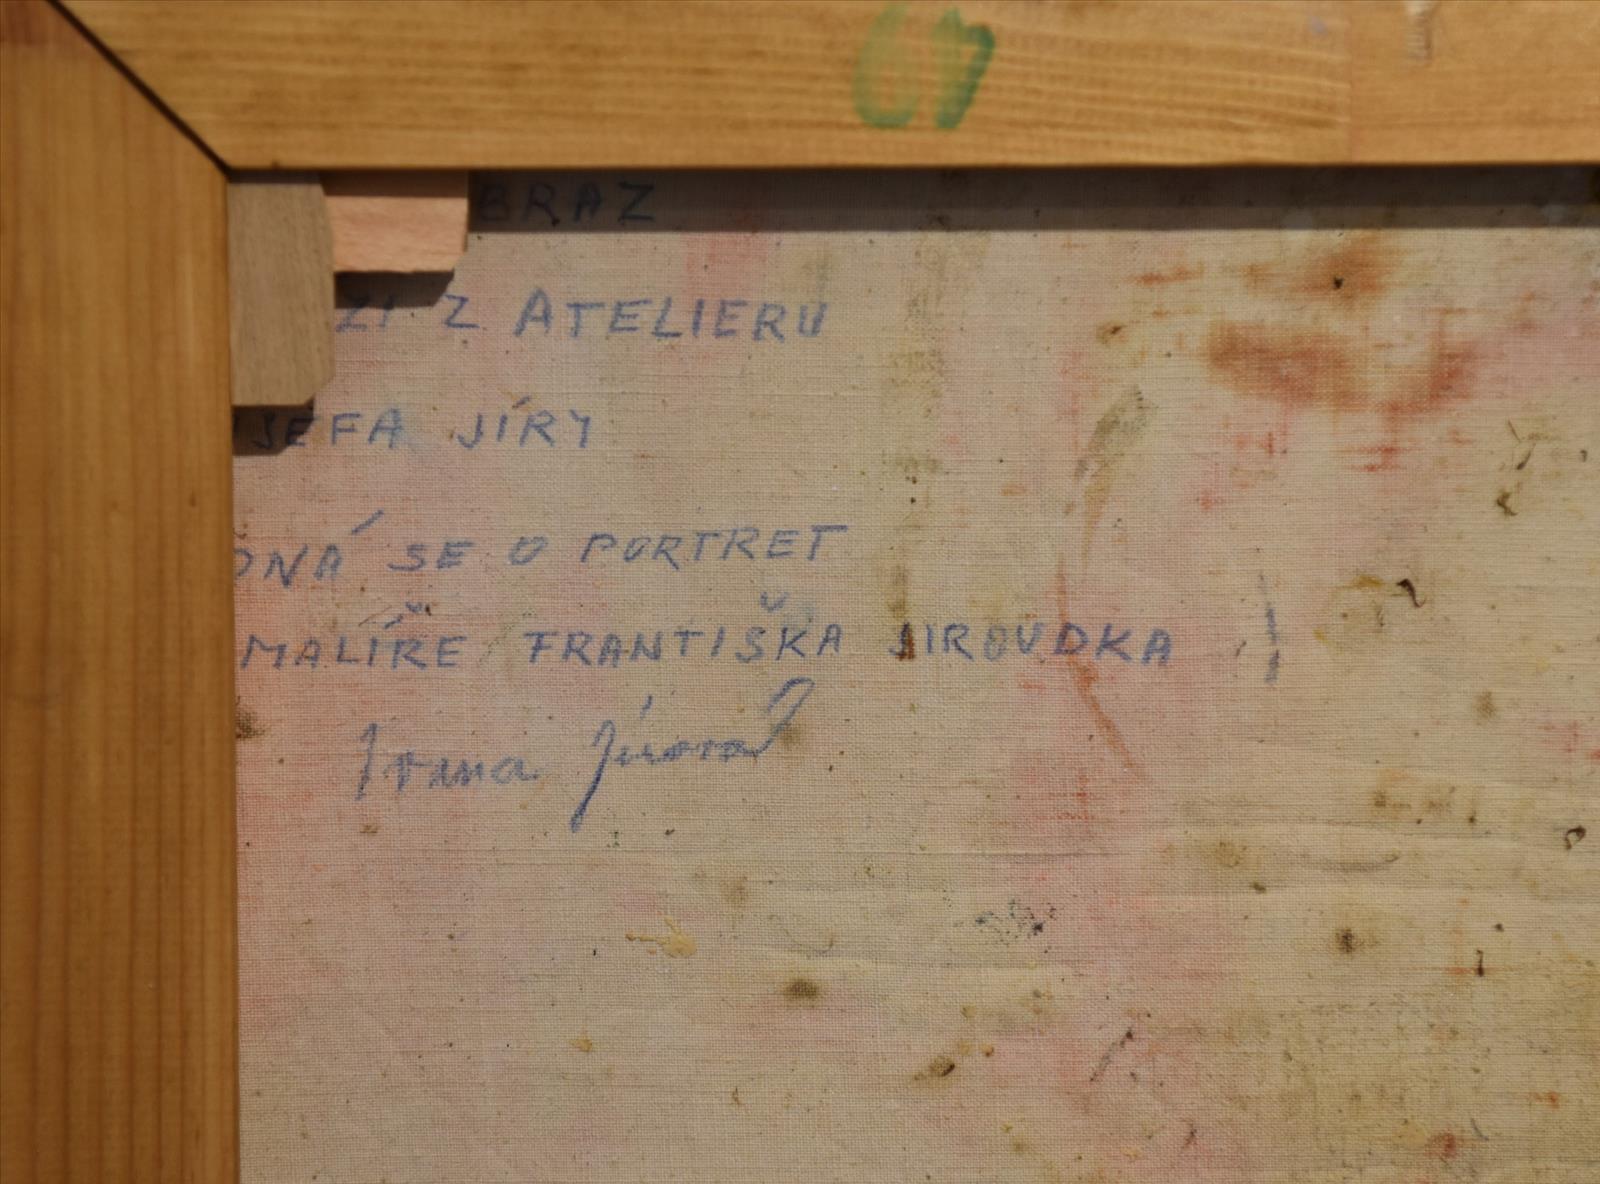 49
BRAZ
ZÍ Z ATELIERU
JEFA JÍRY
DNÁ SE O PORTRET
MALÍŘE FRANTIŠKA JIROUDKA
Ivana Jírová